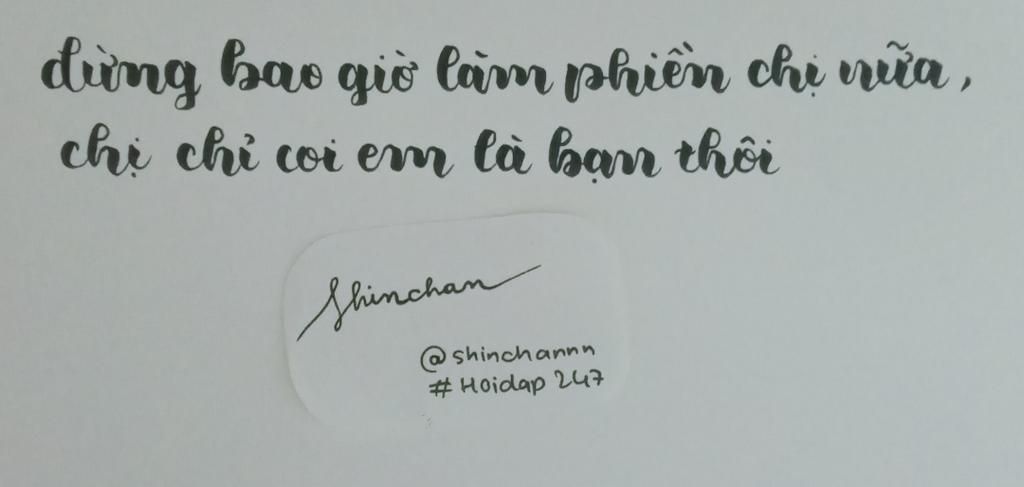 đừng bao giờ làm phiền chị nữa,
chị chỉ coi em là bạn thôi
Shinchan
@shinchannn
#Hoidap 247